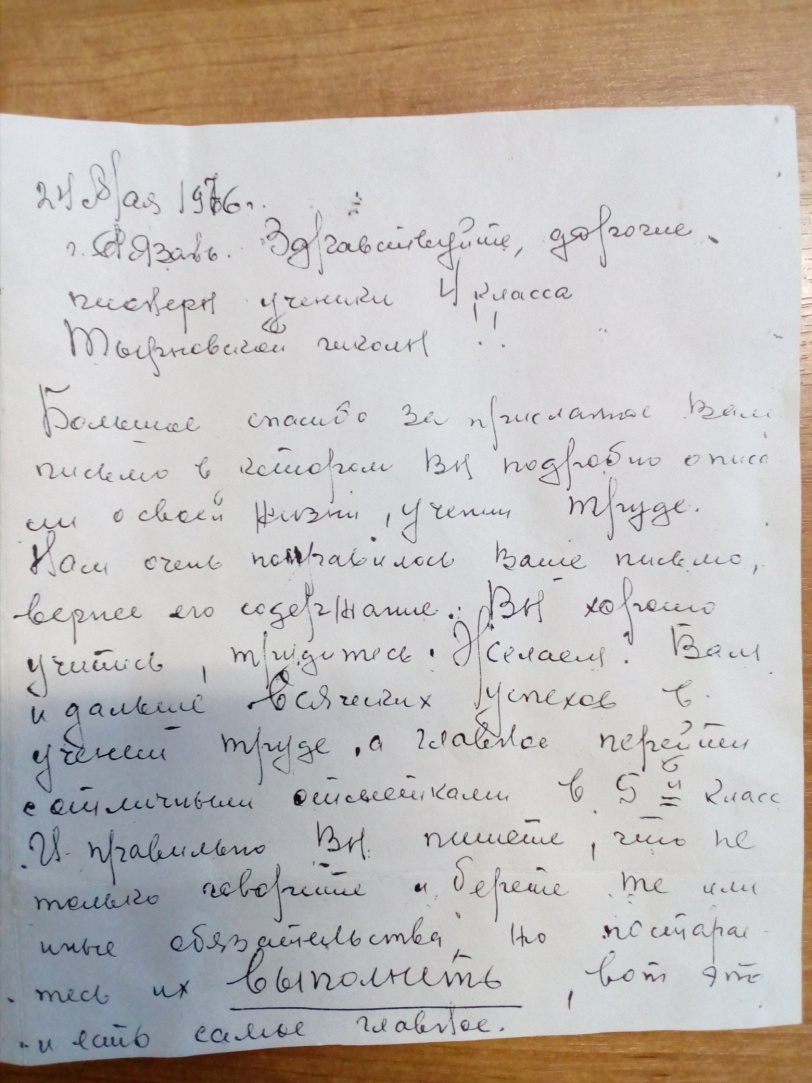 24 Мая 1976г.
г. Рязань. Здравствуйте, дорогие
пионеры ученики 4 класса
Тырновской школы !!
Большое спасибо за присланное Вами
письмо в котором Вы подробно описа
ли о своей жизни, учении труде.
Нам очень понравилось Ваше письмо,
вернее его содержание. Вы хорошо
учитесь, трудитесь. Желаем Вам
и дальше всяческих успехов в
учении труде, а главное перейти
с отличными отметками в 5й класс
И правильно Вы пишете, что не
только говорите и берете те или
иные обязательства, но постарае-
тесь их выполнить, вот это
и есть самое главное.